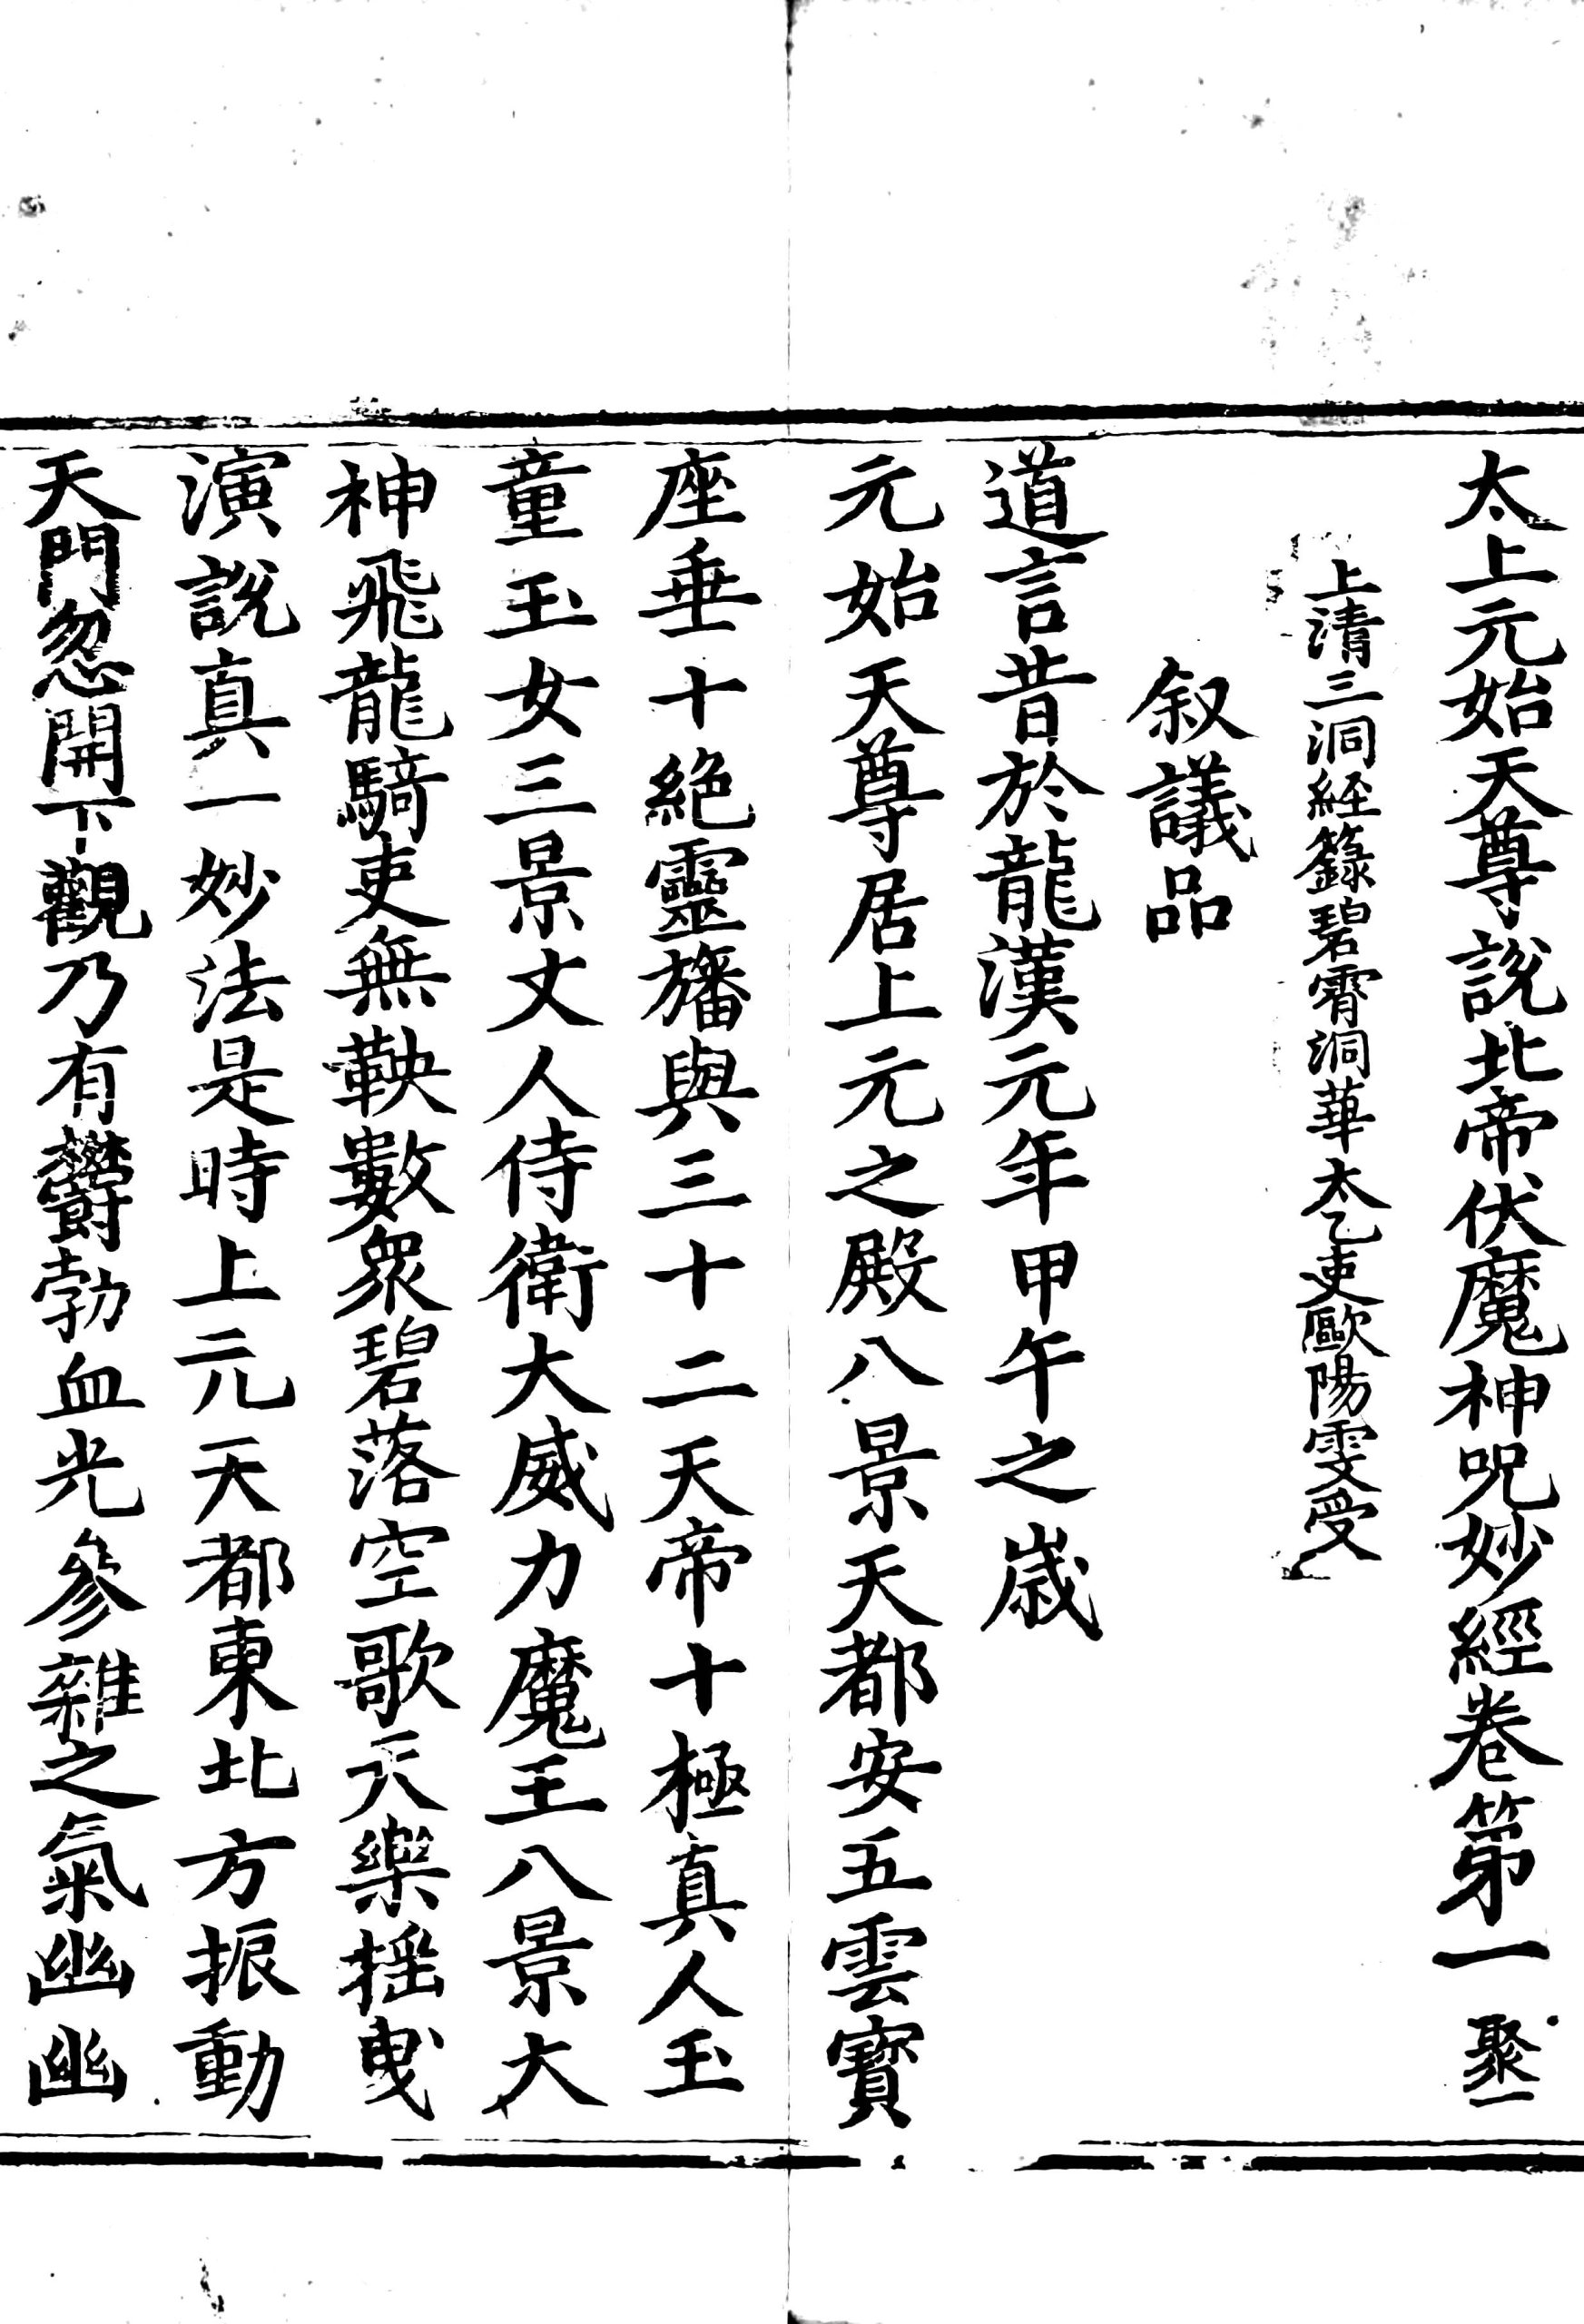 太上元始天尊說北帝伏魔神呪妙經卷第一　聚一
上清三洞經籙碧霄洞華太乙吏歐陽雯受
叙議品
道言昔於龍漢元年甲午之歲
元始天尊居上元之殿八景天都安五雲寶
座垂十絕靈旛與三十二天帝十極真人玉
童玉女三景丈人侍衛大威力魔王八景大
神飛龍騎吏無鞅數衆碧落空歌天樂揺曳
演說真一妙法是時上元天都東北方振動
天門忽開下觀乃有欝勃血光參雜之氣幽幽